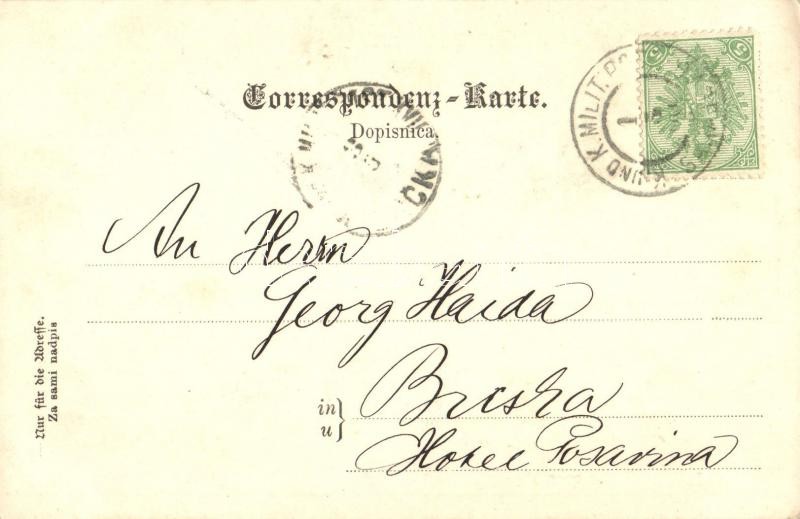 Correspondenz-Karte.
Dopisnica.
5 5
K. UND K. MILIT. PO
ČKA
An Herrn
Georg Haida
in
u
Brcska
Hotel Posavina
Nur für die Adresse.
Za sami nadpis